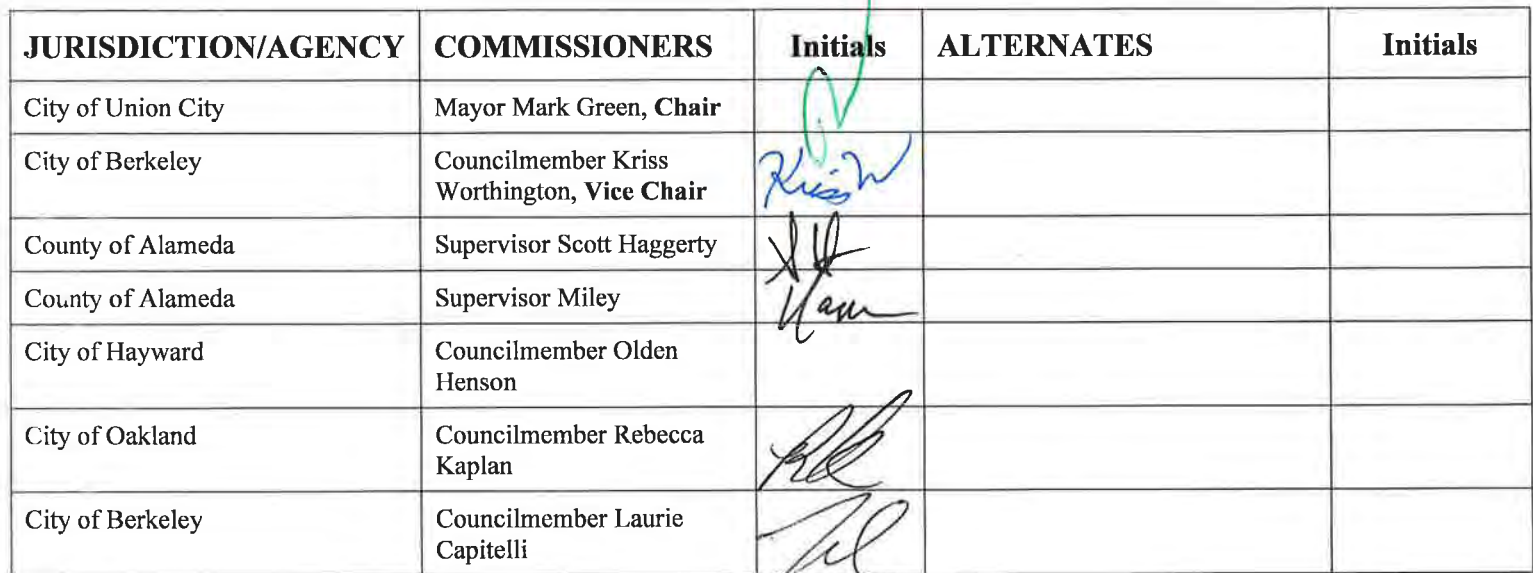 JURISDICTION/AGENCY COMMISSIONERS Initials ALTERNATES Initials
City of Union City Mayor Mark Green, Chair
City of Berkeley Councilmember Kriss
Worthington, Vice Chair
Kriss W
County of Alameda Supervisor Scott Haggerty
County of Alameda Supervisor Miley
City of Hayward Councilmember Olden
Henson
City of Oakland Councilmember Rebecca
Kaplan
City of Berkeley Councilmember Laurie
Capitelli